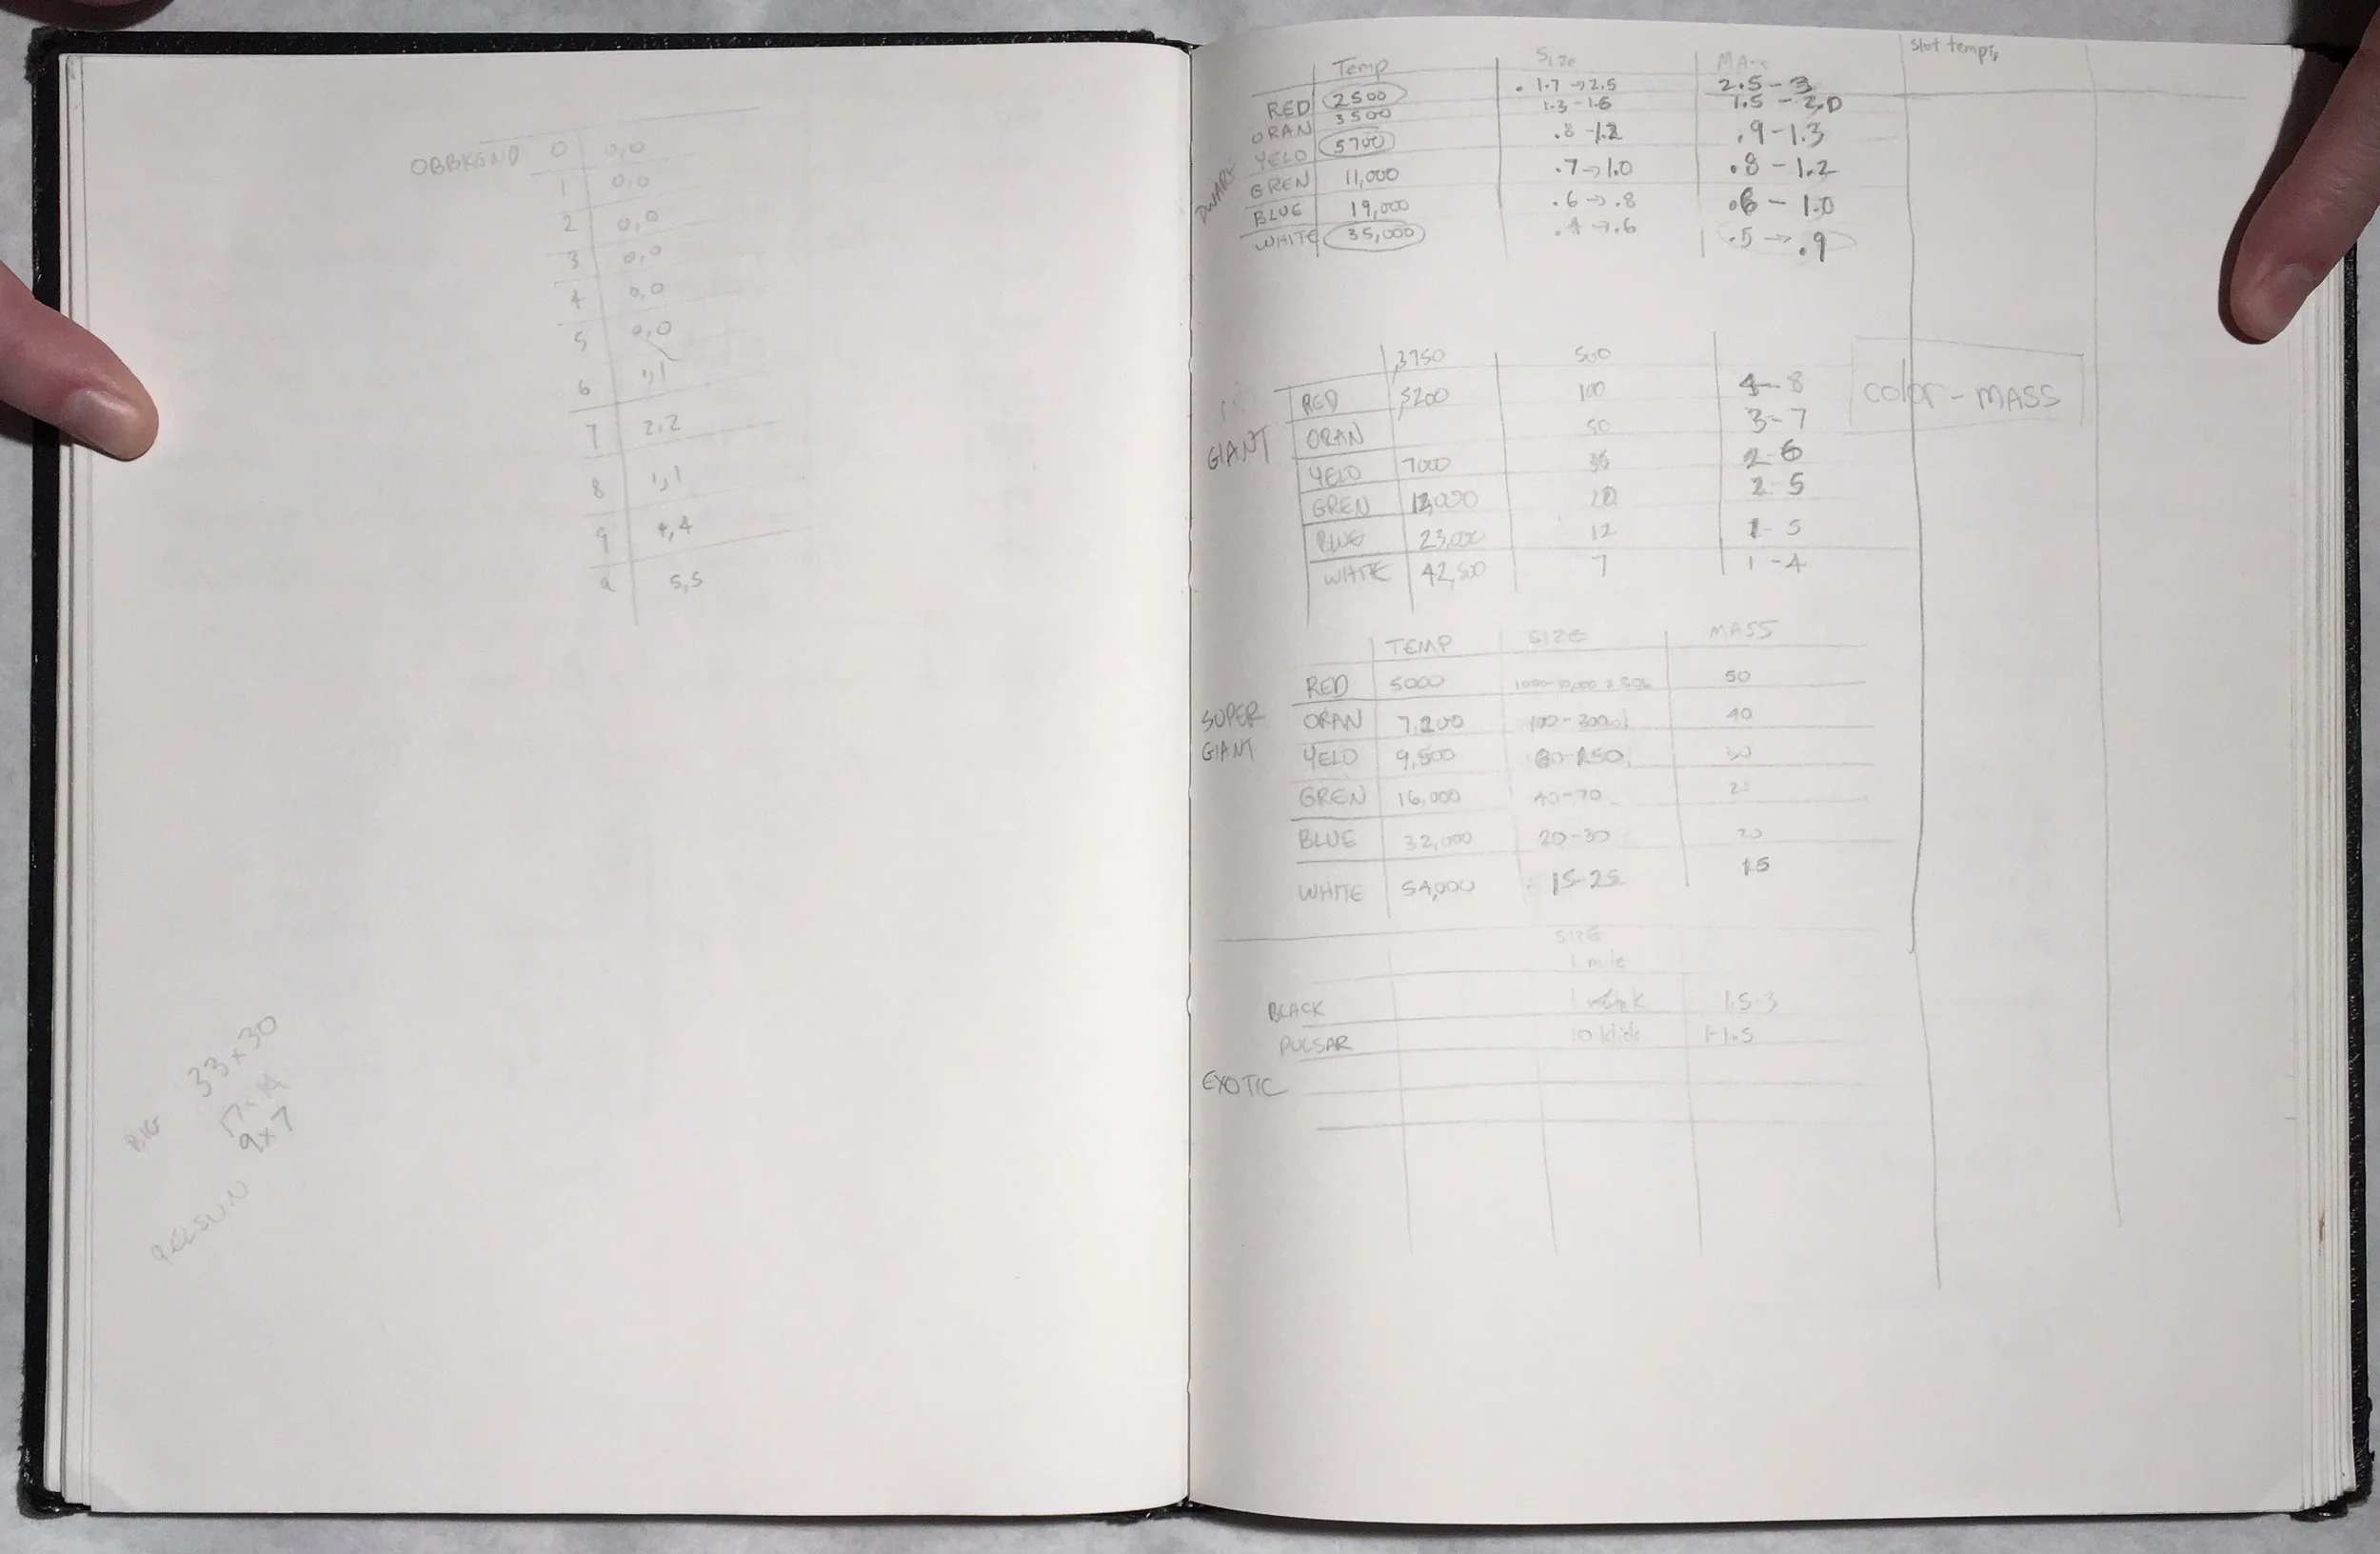 OBBKGND 0 0,0
1 0,0
2 0,0
3 0,0
4 0,0
5 0,0
6 1,1
7 2,2
8 1,1
9 4,4
a 5,5
BIG 33x30
17x14
9x7
Temp Size Mass slot temps,
DWARF
RED 2500 1.7→2.5 2.5-3
ORAN 3500 1.3-1.6 1.5-2.0
YELO 5700 .8-1.2 .9-1.3
GREN 11,000 .7→1.0 .8-1.2
BLUE 19,000 .6→.8 .6-1.0
WHITE 35,000 .4→.6 .5→.9
3750 500
GIANT
RED 5200 100 4-8
color-MASS
ORAN 50 3-7
YELO 7000 35 2-6
GREN 12,000 20 2-5
BLUE 23,000 12 1-5
WHITE 42,500 7 1-4
TEMP SIZE MASS
SUPER GIANT
RED 5000 50
ORAN 7,200 100-300 40
YELO 9,500 30
GREN 16,000 40-70
BLUE 32,000 20-30 20
WHITE 54,000 15-25 15
SIZE
1 mile
BLACK 1 1.5-3
PULSAR 10 klick 1-1.5
EXOTIC